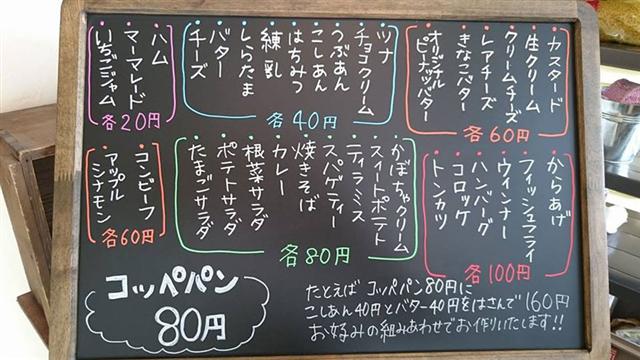 カスタード
生クリーム
クリームチーズ
レアチーズ
きなこバター
オリジナル
ピーナッツバター
各60円
ツナ
チョコクリーム
つぶあん
こしあん
はちみつ
練乳
しらたま
バター
チーズ
各40円
ハム
マーマレード
いちごジャム
各20円
からあげ
フィッシュフライ
ウィンナー
ハンバーグ
コロッケ
トンカツ
各100円
かぼちゃクリーム
スイートポテト
ティラミス
スパゲティー
焼きそば
カレー
根菜サラダ
ポテトサラダ
たまごサラダ
各80円
コンビーフ
アップル
シナモン
各60円
コッペパン
80円
たとえば コッペパン80円に
こしあん40円とバター40円をはさんで160円
お好みの組みあわせでお作りいたします!!